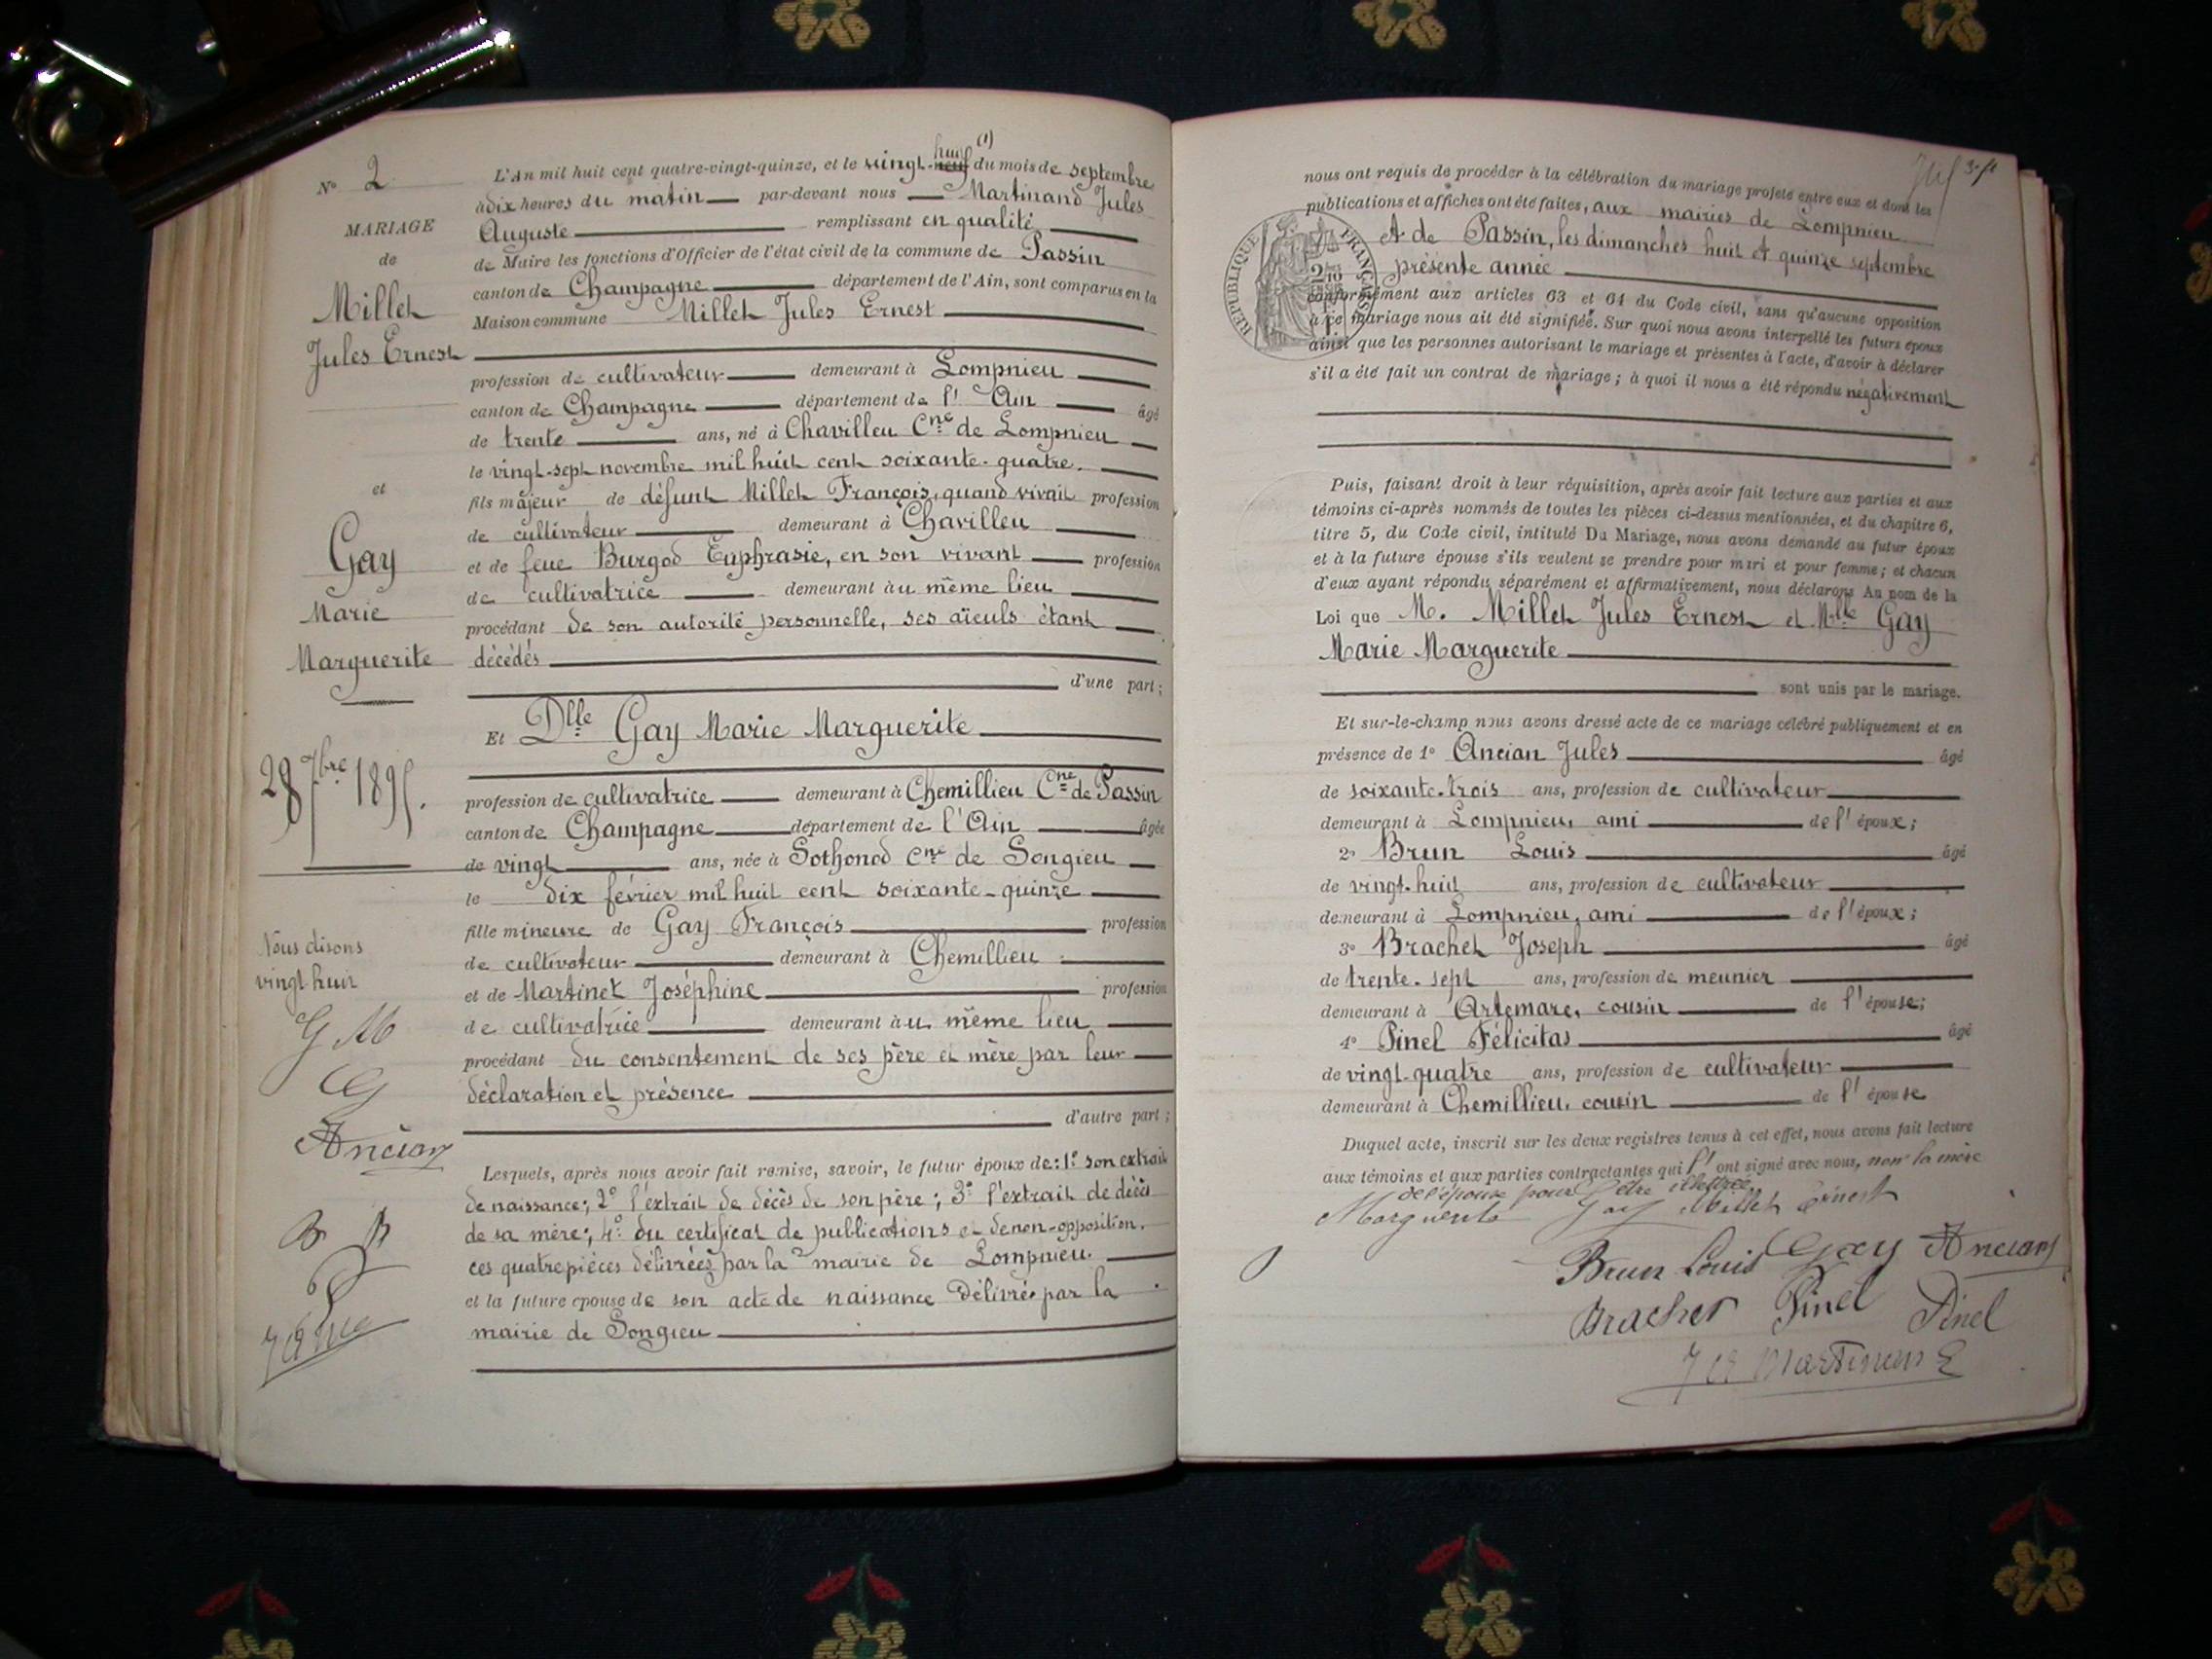 N° 2
MARIAGE
de
Millet
Jules Ernest
et
Gay
Marie
Marguerite
28 7bre 1895.
Nous disons
vingt huit
G M
CG
Ancian
B B
L'An mil huit cent quatre-vingt-quinze, et le vingt-neuf huit (1) du mois de septembre
à dix heures du matin par-devant nous Martinand Jules
Auguste remplissant en qualité
de Maire les fonctions d'Officier de l'état civil de la commune de Passin
canton de Champagne département de l'Ain, sont comparus en la
Maison commune Millet Jules Ernest
profession de cultivateur demeurant à Lompnieu
canton de Champagne département de l'Ain âgé
de trente ans, né à Chavilleu Cne de Lompnieu
le vingt-sept novembre mil huit cent soixante-quatre.
fils majeur de défunt Millet François, quand vivait profession
de cultivateur demeurant à Chavilleu
et de feue Burgod Euphrasie, en son vivant profession
de cultivatrice demeurant au même lieu
procédant de son autorité personnelle, ses aïeuls étant
décédés
d'une part;
Et Dlle Gay Marie Marguerite
profession de cultivatrice demeurant à Chemillieu Cne de Passin
canton de Champagne département de l'Ain âgée
de vingt ans, née à Sothonod Cne de Songieu
le dix février mil huit cent soixante-quinze
fille mineure de Gay François profession
de cultivateur demeurant à Chemillieu
et de Martinet Joséphine profession
de cultivatrice demeurant au même lieu
procédant du consentement de ses père et mère par leur
déclaration et présence
d'autre part;
Lesquels, après nous avoir fait remise, savoir, le futur époux de: 1° son extrait
de naissance; 2° l'extrait de décès de son père; 3° l'extrait de décès
de sa mère; 4° du certificat de publications et de non-opposition.
ces quatre pièces délivrées par la mairie de Lompnieu.
et la future épouse de son acte de naissance délivré par la
mairie de Songieu
nous ont requis de procéder à la célébration du mariage projeté entre eux et dont les
publications et affiches ont été faites, aux mairies de Lompnieu
et de Passin, les dimanches huit et quinze septembre
présente année
RÉPUBLIQUE FRANÇAISE
conformément aux articles 63 et 64 du Code civil, sans qu'aucune opposition
à ce mariage nous ait été signifiée. Sur quoi nous avons interpellé les futurs époux
ainsi que les personnes autorisant le mariage et présentes à l'acte, d'avoir à déclarer
s'il a été fait un contrat de mariage; à quoi il nous a été répondu négativement
Puis, faisant droit à leur réquisition, après avoir fait lecture aux parties et aux
témoins ci-après nommés de toutes les pièces ci-dessus mentionnées, et du chapitre 6,
titre 5, du Code civil, intitulé Du Mariage, nous avons demandé au futur époux
et à la future épouse s'ils veulent se prendre pour mari et pour femme; et chacun
d'eux ayant répondu séparément et affirmativement, nous déclarons Au nom de la
Loi que M. Millet Jules Ernest et Mlle Gay
Marie Marguerite
sont unis par le mariage.
Et sur-le-champ nous avons dressé acte de ce mariage célébré publiquement et en
présence de 1° Ancian Jules âgé
de soixante-trois ans, profession de cultivateur
demeurant à Lompnieu, ami de l'époux;
2° Brun Louis âgé
de vingt-huit ans, profession de cultivateur
demeurant à Lompnieu, ami de l'époux;
3° Brachet Joseph âgé
de trente-sept ans, profession de meunier
demeurant à Artemare, cousin de l'épouse;
4° Pinel Félicitas âgé
de vingt-quatre ans, profession de cultivateur
demeurant à Chemillieu, cousin de l'épouse
Duquel acte, inscrit sur les deux registres tenus à cet effet, nous avons fait lecture
aux témoins et aux parties contractantes qui l'ont signé avec nous, non la mère
de l'épouse pour être illettrée.
Marguerite Gay Millet Ernest
Brun Louis Gay Ancian
Brachet Pinel Pinel
Martinand